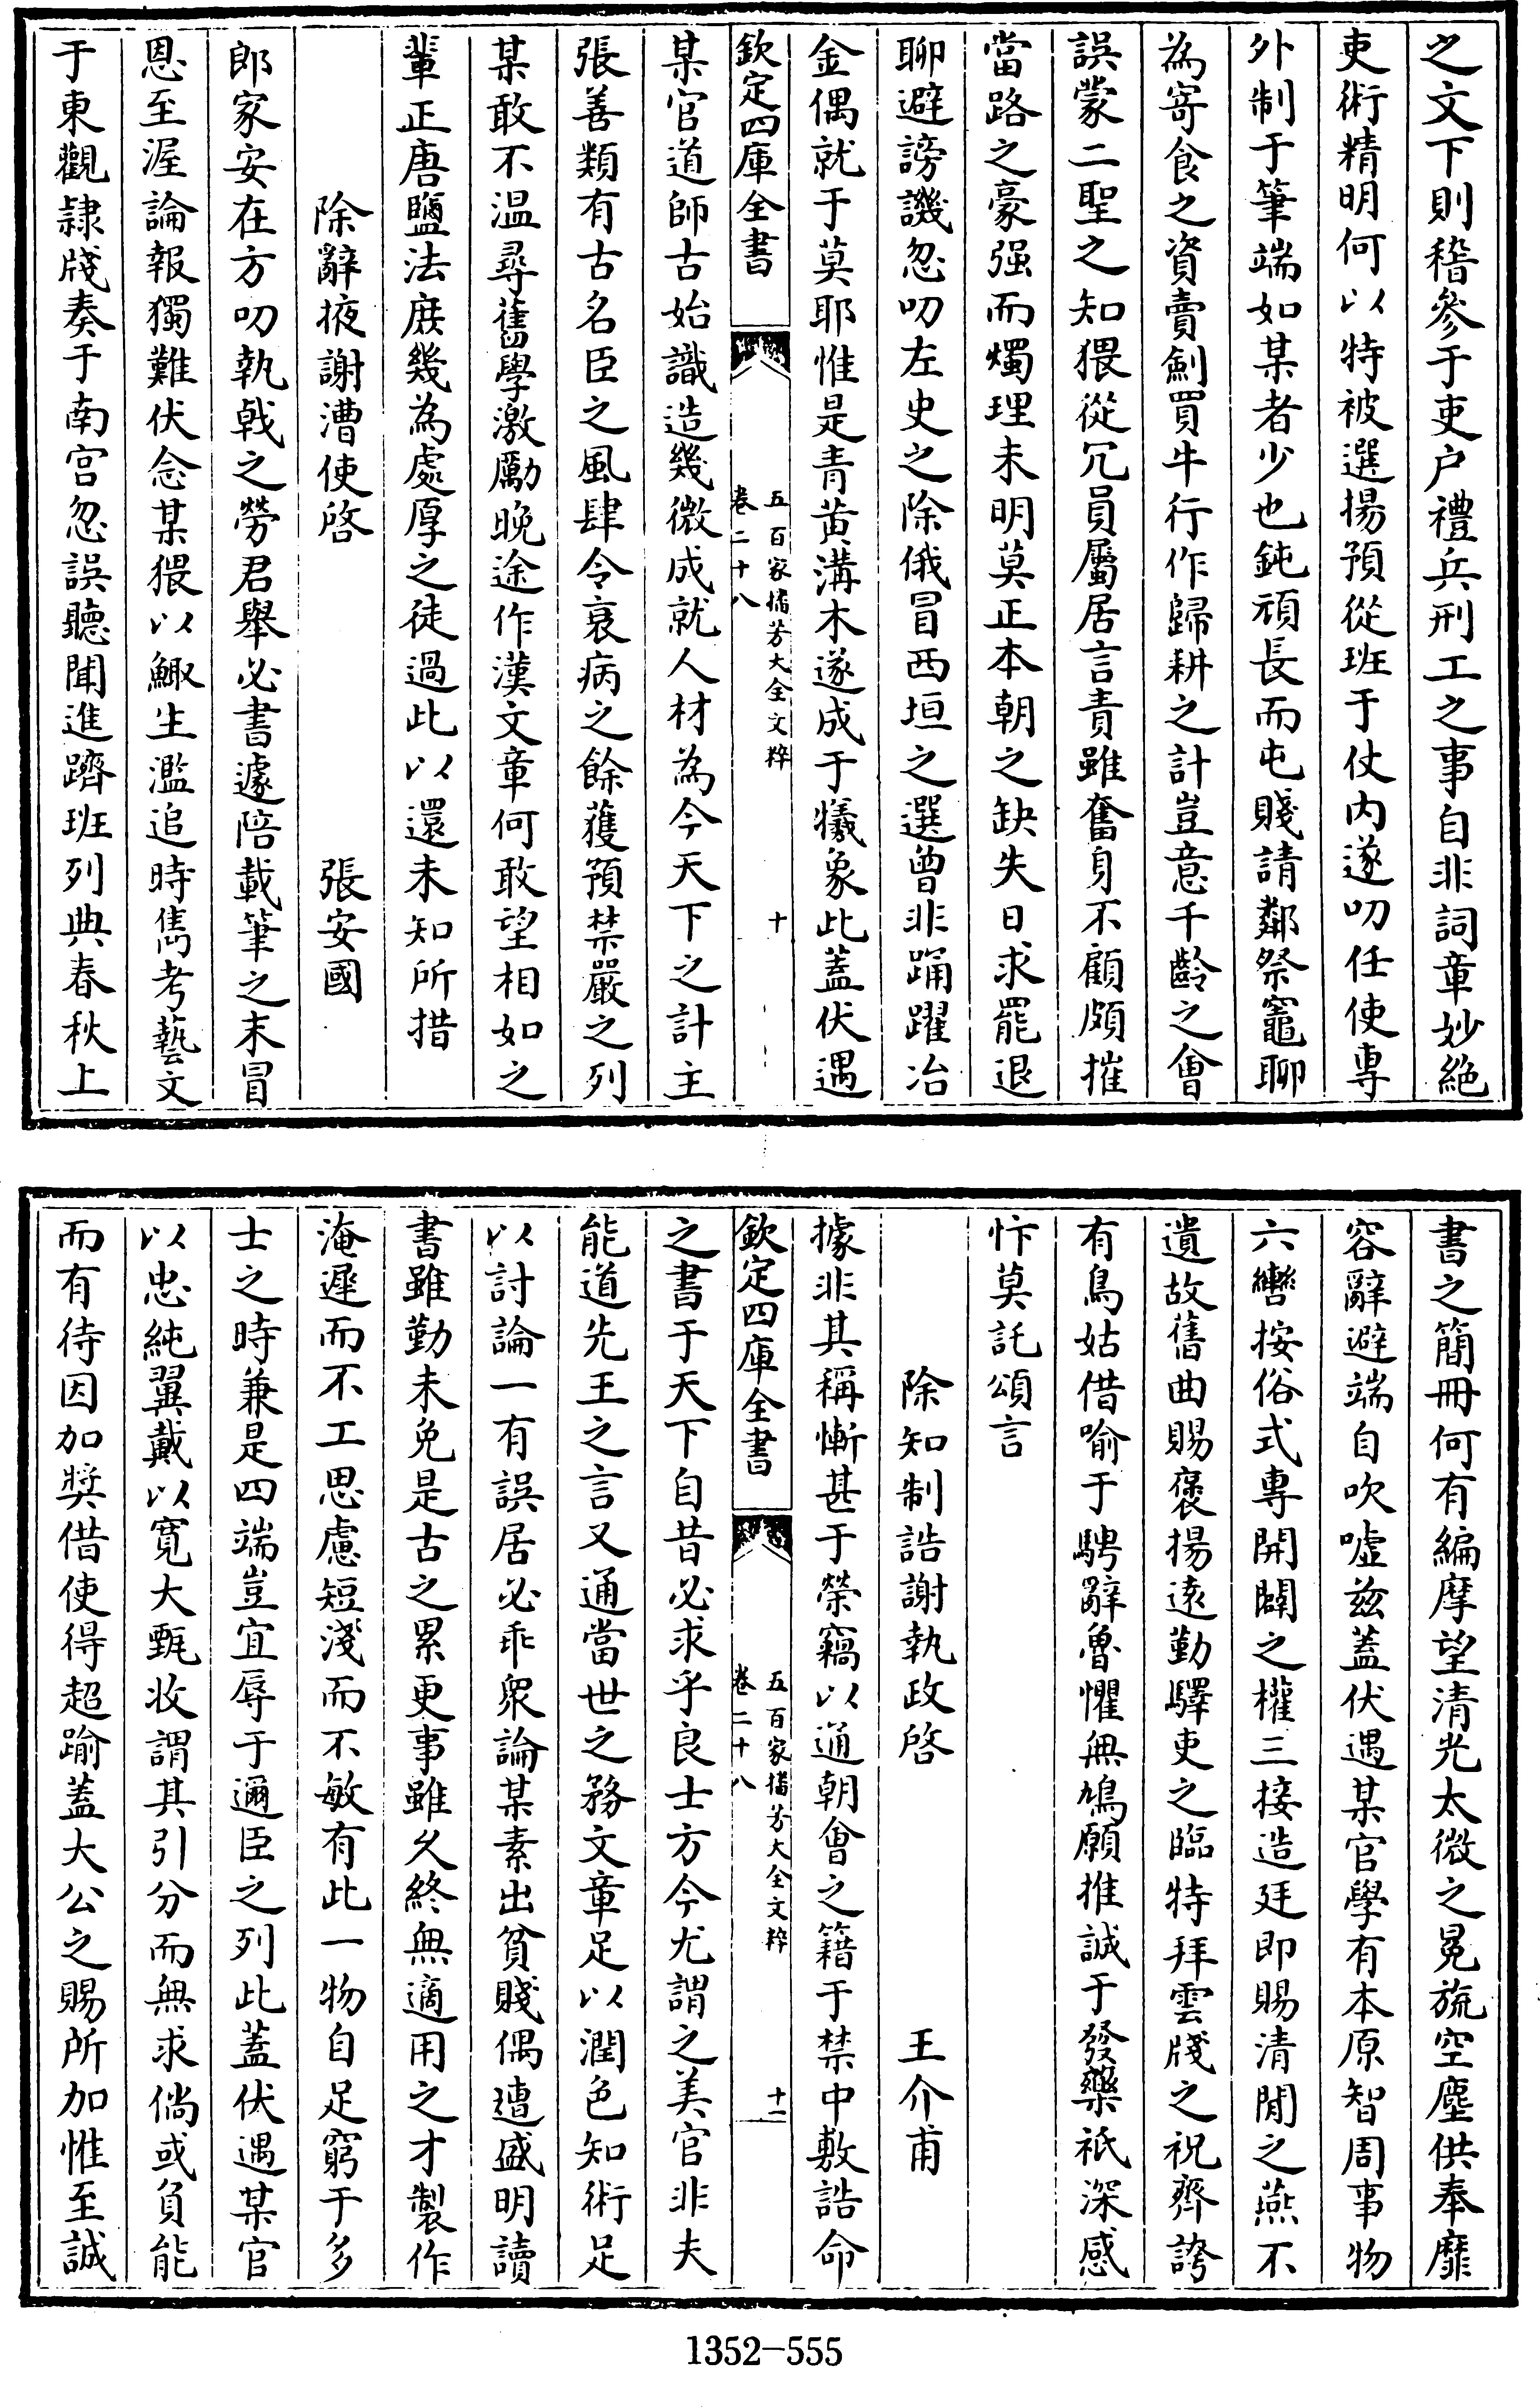 之文下則稽參于吏户禮兵刑工之事自非詞章妙絶
吏術精明何以特被選揚預從班于仗内遂叨任使專
外制于筆端如某者少也鈍頑長而屯賤請鄰祭竈聊
為寄食之資賣劍買牛行作歸耕之計豈意千齡之會
誤蒙二聖之知猥從冗員屬居言責雖奮身不顧頗摧
當路之豪强而燭理未明莫正本朝之缺失日求罷退
聊避謗譏忽叨左史之除俄冒西垣之選曾非踊躍冶
金偶就于莫耶惟是青黄溝木遂成于犧象此蓋伏遇
欽定四庫全書
五百家播芳大全文粹
卷二十八
十
某官道師古始識造幾微成就人材為今天下之計主
張善類有古名臣之風肆令衰病之餘獲預禁嚴之列
某敢不温尋舊學激勵晚途作漢文章何敢望相如之
輩正唐鹽法庶幾為處厚之徒過此以還未知所措
除辭掖謝漕使啓 張安國
郎家安在方叨執戟之勞君舉必書遽陪載筆之末冒
恩至渥論報獨難伏念某猥以鯫生濫追時雋考藝文
于東觀隷牋奏于南宫忽誤聽聞進躋班列典春秋上
書之簡冊何有編摩望清光太微之冕旒空塵供奉靡
容辭避端自吹噓兹蓋伏遇某官學有本原智周事物
六轡按俗式專開闢之權三接造廷即賜清閒之燕不
遺故舊曲賜褒揚逺勤驛吏之臨特拜雲牋之祝齊誇
有鳥姑借喻于騁辭魯懼無鳩願推誠于發藥祇深感
忭莫託頌言
除知制誥謝執政啓 王介甫
據非其稱慚甚于榮竊以通朝會之籍于禁中敷誥命
欽定四庫全書
五百家播芳大全文粹
卷二十八
十一
之書于天下自昔必求乎良士方今尤謂之美官非夫
能道先王之言又通當世之務文章足以潤色知術足
以討論一有誤居必乖衆論某素出貧賤偶遭盛明讀
書雖勤未免是古之累更事雖久終無適用之才製作
淹遲而不工思慮短淺而不敏有此一物自足窮于多
士之時兼是四端豈宜辱于邇臣之列此蓋伏遇某官
以忠純翼戴以寛大甄收謂其引分而無求倘或負能
而有待因加奬借使得超踰蓋大公之賜所加惟至誠
1352-555